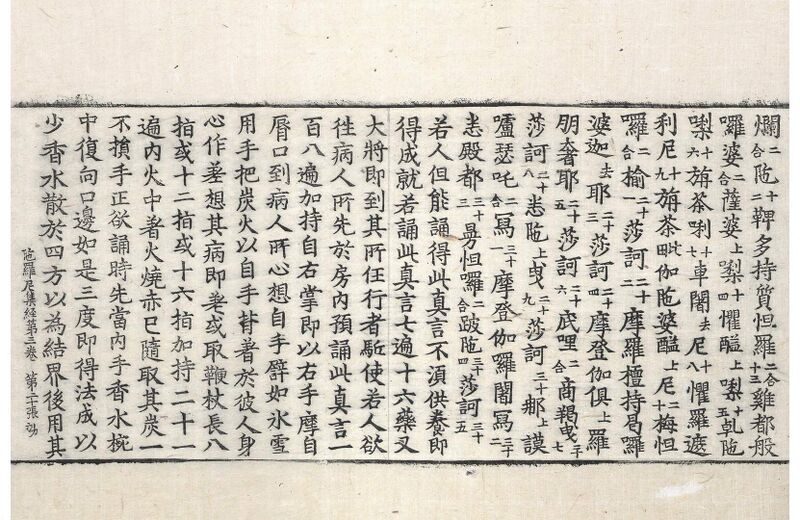 爛二合陁十二鞞多持質怛羅二合十三雞都般
囉婆二合薩婆上㘑十四懼醯上㘑十五軋陁
㘑十六旃茶㘑十七車闍去尼十八懼羅遮
利尼十九旃茶毗伽陁婆醯上尼二十梅怛
囉二合揄二十一莎訶二十二摩羅檀持曷囉
婆迦去耶二十三莎訶二十四摩登伽俱上羅
朋奢耶二十五莎訶二十六底哩二合商羯曳二十七
莎訶二十八恙陁上曳二十九莎訶三十那上謨
嚧瑟吒二合寫三十一摩登伽羅闍寫三十二
恙殿都三十三曷怛囉二合跛陁三十四莎訶三十五
若人但能誦得此真言不湏供養即
得成就若誦此真言七遍十六藥叉
大將即到其所任行者駈使若人欲
徃病人所先於房内預誦此真言一
百八遍加持自右掌即以右手摩自
脣口到病人所心想自手臂如氷雪
用手把炭火以自手揩著於彼人身
心作差想其病即差或取鞭杖長八
指或十二指或十六指加持二十一
遍内火中著火燒赤已隨取其炭一
不搶手正欲誦時先當内手香水椀
中復向口邊如是三度即得法成以
少香水散於四方以為結界後用其
陁羅尼集経第三卷 第二十張